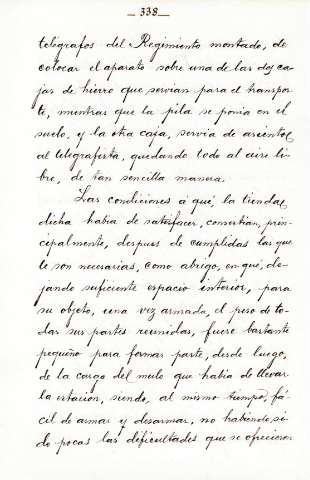 — 338 —
telégrafos del Regimiento montado, de
colocar el aparato sobre una de las dos ca-
jas de hierro que servian para el transpor-
te, mientras que la pila se ponia en el
suelo, y la otra caja, servia de asiento
al telegrafista, quedando todo al aire li-
bre, de tan sencilla manera.
Las condiciones á que, la tienda
dicha habia de satisfacer, consistian, prin-
cipalmente, despues de cumplidas las que
le son necesarias, como abrigo, en que, de-
jando suficiente espacio interior, para
su objeto, una vez armada, el peso de to-
das sus partes reunidas, fuese bastante
pequeño para formar parte, desde luego,
de la carga del mulo que habia de llevar
la estación, siendo, al mismo tiempo, fá-
cil de armar y desarmar, no habiendo si-
do pocas las dificultades que se ofrecieron